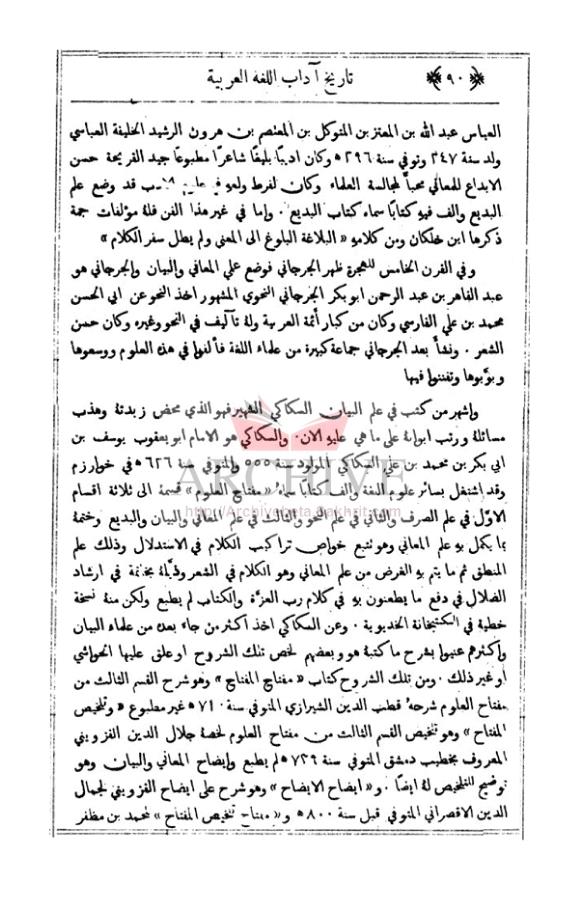 ﴿ ٩٠ ﴾ تاريخ آداب اللغة العربية
العباس عبد الله بن المعتز بن المتوكل بن المعتصم بن هرون الرشيد الخليفة العباسي
ولد سنة ٢٤٧ وتوفي سنة ٢٩٦ ه وكان اديبًا بليغًا شاعرًا مطبوعًا جيد القريحة حسن
الابداع للمعاني محبًا لمجالسة العلماء وكان لفرط ولعهِ في قد وضع علم
البديع والف فيهِ كتابًا سماه كتاب البديع . واما في غير هذا الفن فلهُ مؤلفات جمة
ذكرها ابن خلكان ومن كلامهِ « البلاغة البلوغ الى المعنى ولم يطل سفر الكلام »
و في القرن الخامس للهجرة ظهر الجرجاني فوضع علمي المعاني والبيان والجرجاني هو
عبد القاهر بن عبد الرحمن ابو بكر الجرجاني النحوي المشهور اخذ النحو عن ابي الحسن
محمد بن علي الفارسي وكان من كبار أئمة العربية ولهُ تآليف في النحو وغيره وكان حسن
الشعر . ونشأ بعد الجرجاني جماعة كبيرة من علماء اللغة فألفوا في هذه العلوم ووسعوها
وبوّبوها وتفننوا فيها
واشهر من كتب في علم البيان السكاكي الشهير فهو الذي محض زبدتهُ وهذب
مسائلهُ ورتب ابوابهُ على ما هي عليهِ الان . والسكاكي هو الامام ابو يعقوب يوسف بن
ابي بكر بن محمد بن علي السكاكي المولود سنة ٥٥٥ والمتوفي سنة ٦٢٦ ه في خوارزم
ARCHIVE
وقد اشتغل بسائر علوم اللغة والف كتابًا سماهُ « مفتاح العلوم » قسمهُ الى ثلاثة اقسام
http://Archivebeta.Sakhrit.com
الاوّل في علم الصرف والثاني في علم النحو والثالث في علم المعاني والبيان والبديع وختمهُ
بما يكمل بهِ علم المعاني وهو تتبع خواص تراكيب الكلام في الاستدلال وذلك علم
المنطق ثم ما يتم بهِ الغرض من علم المعاني وهو الكلام في الشعر وذيلهُ بخاتمة في ارشاد
الضلال في دفع ما يطعنون بهِ في كلام رب العزة والكتاب لم يطبع ولكن منهُ نسخة
خطية في الكتبخانة الخديوية . وعن السكاكي اخذ أكثر من جاء بعده من علماء البيان
وأكثرهم عنوا بشرح ما كتبهُ هو وبعضهم لخص تلك الشروح او علق عليها الحواشي
او غير ذلك . ومن تلك الشروح كتاب « مفتاح المفتاح » وهو شرح القسم الثالث من
مفتاح العلوم شرحهُ قطب الدين الشيرازي المتوفي سنة ٧١٠ ه غير مطبوع « وتلخيص
المفتاح » وهو تلخيص القسم الثالث من مفتاح العلوم لخصهُ جلال الدين القزويني
المعروف بخطيب دمشق المتوفي سنة ٧٣٩ ه لم يطبع وإيضاح المعاني والبيان وهو
توضيح للتلخيص لهُ ايضًا . و « ايضاح الايضاح » وهو شرح على ايضاح القزويني لجمال
الدين الاقصرائي المتوفي قبل سنة ٨٠٠ ه و « مفتاح تلخيص المفتاح » لمحمد بن مظفر